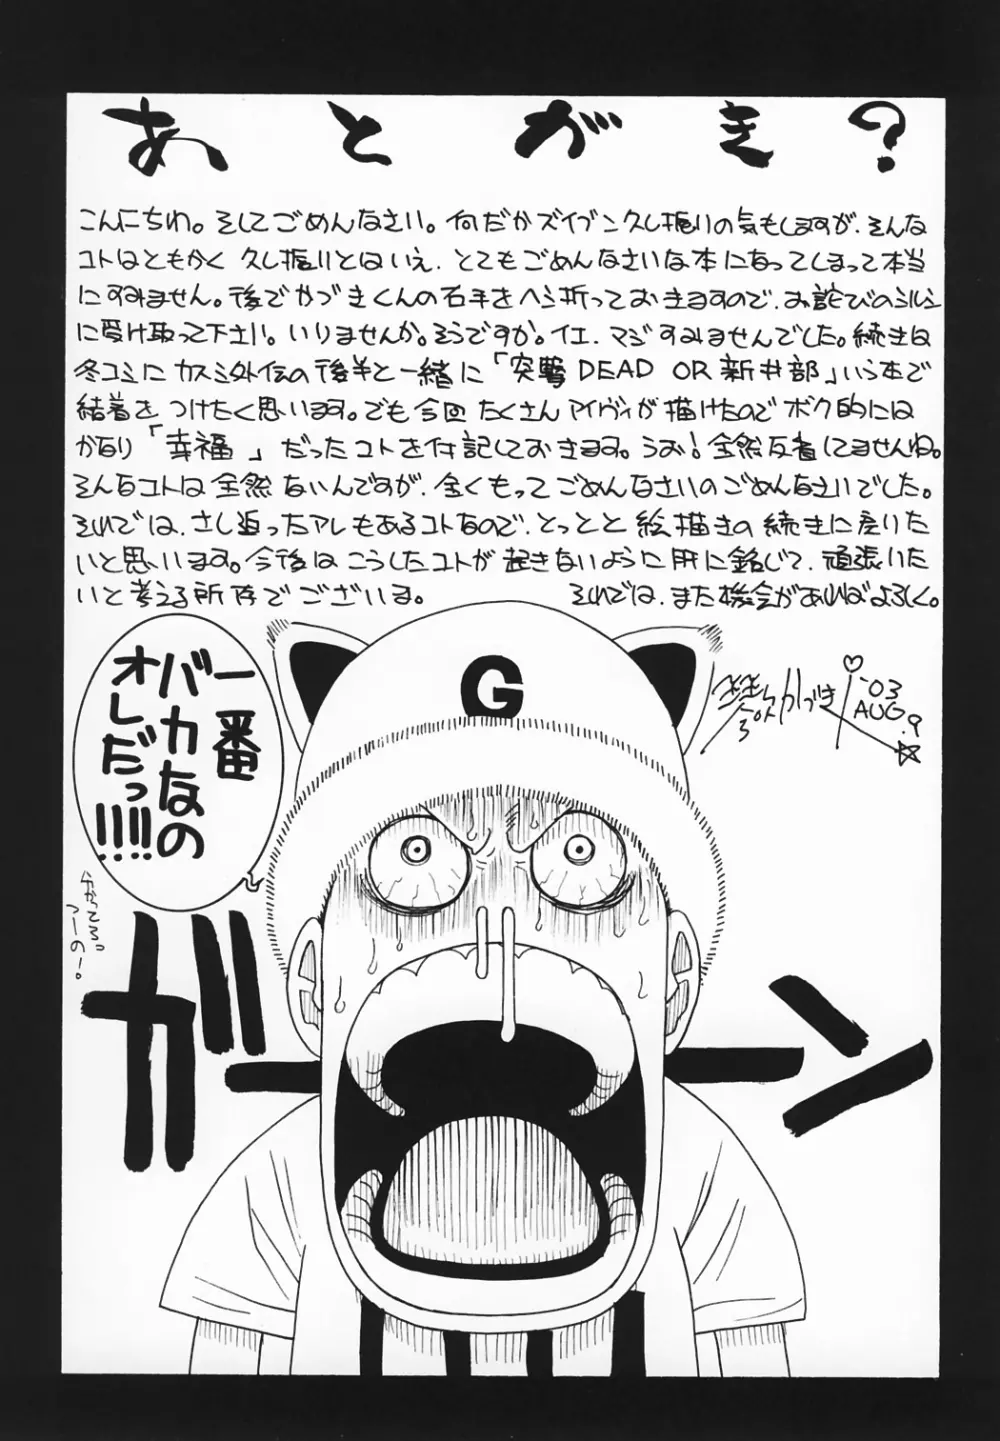 あとがき？
こんにちわ。そしてごめんなさい。何だかズイブン久し振りの気もしますが、そんな
コトはともかく 久し振りとはいえ、とてもごめんなさいな本になってしまって本当
にすみません。後でかづきくんの右手をヘシ折っておきますので、お詫びのシルシ
に受け取って下さい。いりませんか。そうですか。イエ、マジすみませんでした。続きは
冬コミにカスミ外伝の後半と一緒に「突撃 DEAD OR 新井部」いう本で
結着をつけたく思います。でも今回たくさんアイヴィが描けたのでボク的には
かなり「幸福」だったコトを付記しておきます。うお！全然反省してませんね。
そんなコトは全然ないんですが、全くもってごめんなさいのごめんなさいでした。
それでは、さし迫ったアレもあるコトなので、とっとと絵描きの続きに戻りた
いと思います。今後はこうしたコトが起きないように肝に銘じて、頑張りた
いと考える所存でございま。 それでは、また機会があればよろしく。
かづき
'03
AUG.9
一番
バカなの
オレだっ!!!!!
分かってるっ
つーの！
G
ガーン